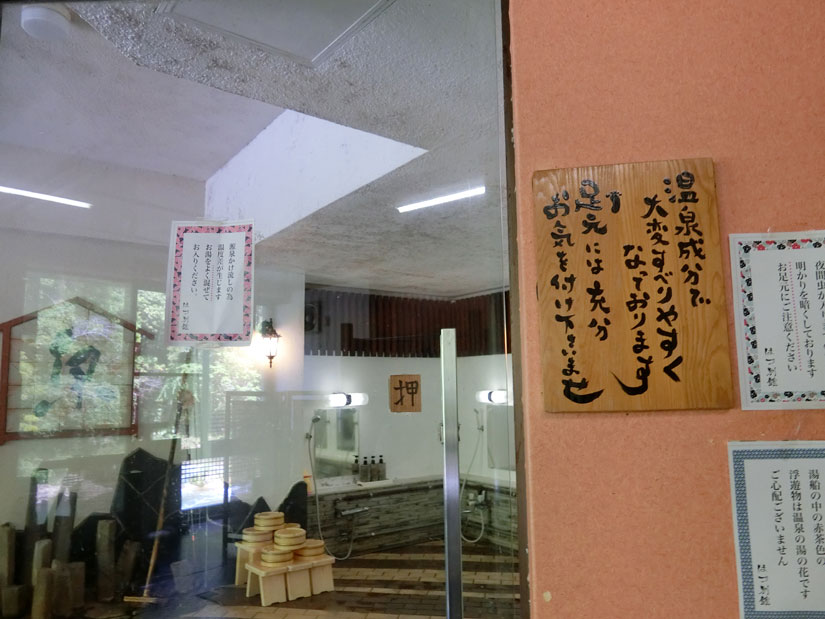 温泉成分で
大変すべりやすく
なっております
足元には充分
お気を付け下さいませ
源泉かけ流しの為
温度差が生じます
お湯をよく混ぜて
お入りください。
押
夜間虫が入り
明かりを暗くしております
お足元にご注意ください
湯船の中の赤茶色の
浮遊物は温泉の湯の花です
ご心配ございません